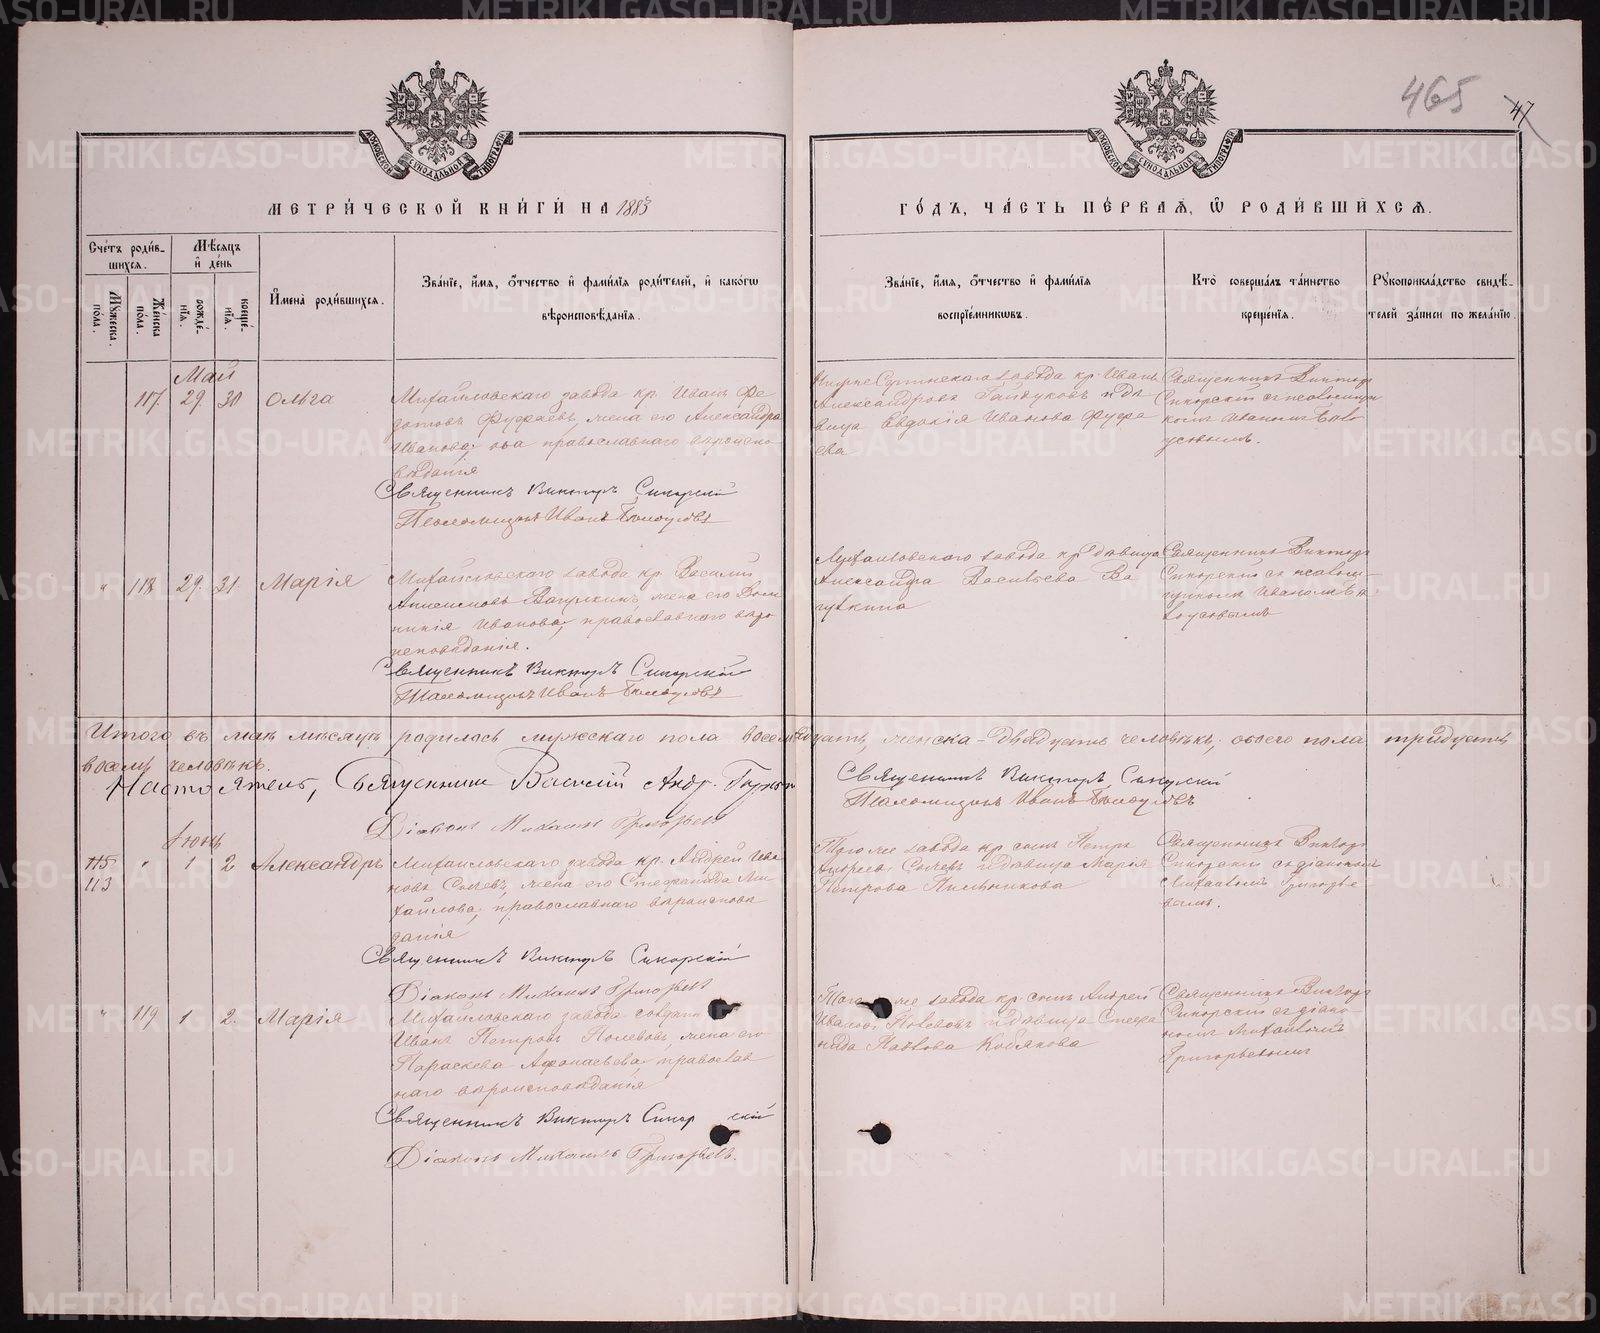 465
47
МОСКОВСКОЙ СѴНОДАЛЬНОЙ ТИПОГРАФІИ
МОСКОВСКОЙ СѴНОДАЛЬНОЙ ТИПОГРАФІИ
МЕТРИ́ЧЕСКОЙ КНИ́ГИ НА 1883
ГО́ДЪ, ЧА́СТЬ ПЕ́РВАЯ, Ѡ РОДИ́ВШИХСЯ.
Сче́тъ роди́в-
шихся.
Му́жеска по́ла.
Же́нска по́ла.
Мѣ́сяцъ
и де́нь
рожде́-
нія.
креще́-
нія.
И́мена роди́вшихся.
Зва́ніе, и́мя, о́тчество и фами́лія роди́телей, и како́гѡ
вѣроисповѣ́данія.
Зва́ніе, и́мя, о́тчество и фами́лія
воспріе́мникѡвъ.
Кто̀ соверша́лъ та́инство
креще́нія.
Рꙋкоприкла́дство свидѣ́-
телей за́писи по жела́нію.
Май
117. 29. 30 Ольга
Михайловскаго завода кр. Иванъ Фе
дотовъ Фуфаевъ, жена его Александра
Иванова; оба православнаго вѣроиспо
вѣданія
Священникъ Викторъ Сикорскій
Псаломщикъ Иванъ Бѣлоусовъ
Нижне Сергинскаго завода кр. Иванъ
Александровъ Гайдуковъ и дѣ
вица Евдокія Иванова Фуфа
ева
Священникъ Викторъ
Сикорскій съ псаломщи
комъ Иваномъ Бѣло
усовымъ.
" 118 29. 31. Марія
Михайловскаго завода кр. Василій
Анисимовъ Вапучкинъ, жена его Дом
никія Иванова; православнаго вѣро
исповѣданія.
Священникъ Викторъ Сикорскій
Псаломщикъ Иванъ Бѣлоусовъ
Михайловскаго завода кр. дѣвица
Александра Васильева Ва
пучкина
Священникъ Викторъ
Сикорскій съ псалом-
щикомъ Иваномъ Бѣ
лоусовымъ
Итого въ маѣ мѣсяцѣ родилось мужскаго пола восемнадцать, женска - двадцать человѣкъ; обоего пола тридцать
восемь человѣкъ.
Настоятель, Священникъ Василій Андр.
Діаконъ Михаилъ Григорьевъ
Священникъ Викторъ Сикорскій
Псаломщикъ Иванъ Бѣлоусовъ
Іюнь
115 " 1 2 Александръ
113
Михайловскаго завода кр. Андрей Ива
новъ Сычевъ, жена его Стефанида Ми
хайлова; православнаго вѣроисповѣ
данія
Священникъ Викторъ Сикорскій
Діаконъ Михаилъ Григорьевъ
Того же завода кр. сынъ Петръ
Андреевъ Сычевъ и дѣвица Марія
Петрова Пильникова
Священникъ Викторъ
Сикорскій съ діакономъ
Михаиломъ Григорье
вымъ.
" 119 1 2. Марія
Михайловскаго завода солдатъ
Иванъ Петровъ Полевовъ, жена его
Параскева Афонасьева; православ
наго вѣроисповѣданія
Священникъ Викторъ Сикорскій
Діаконъ Михаилъ Григорьевъ.
Того же завода кр. сынъ Андрей
Ивановъ Полевовъ и дѣвица Стефа
нида Павлова Кобякова
Священникъ Викторъ
Сикорскій съ діако
номъ Михаиломъ
Григорьевымъ
METRIKI.GASO-URAL.RU